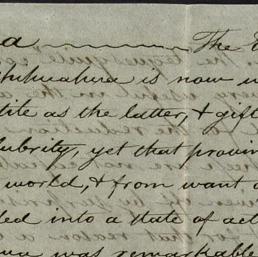 a The
is now
tite as the latter, & gift
lubrity, yet that provin
world, & from want o
led into a state of act
was remarkable